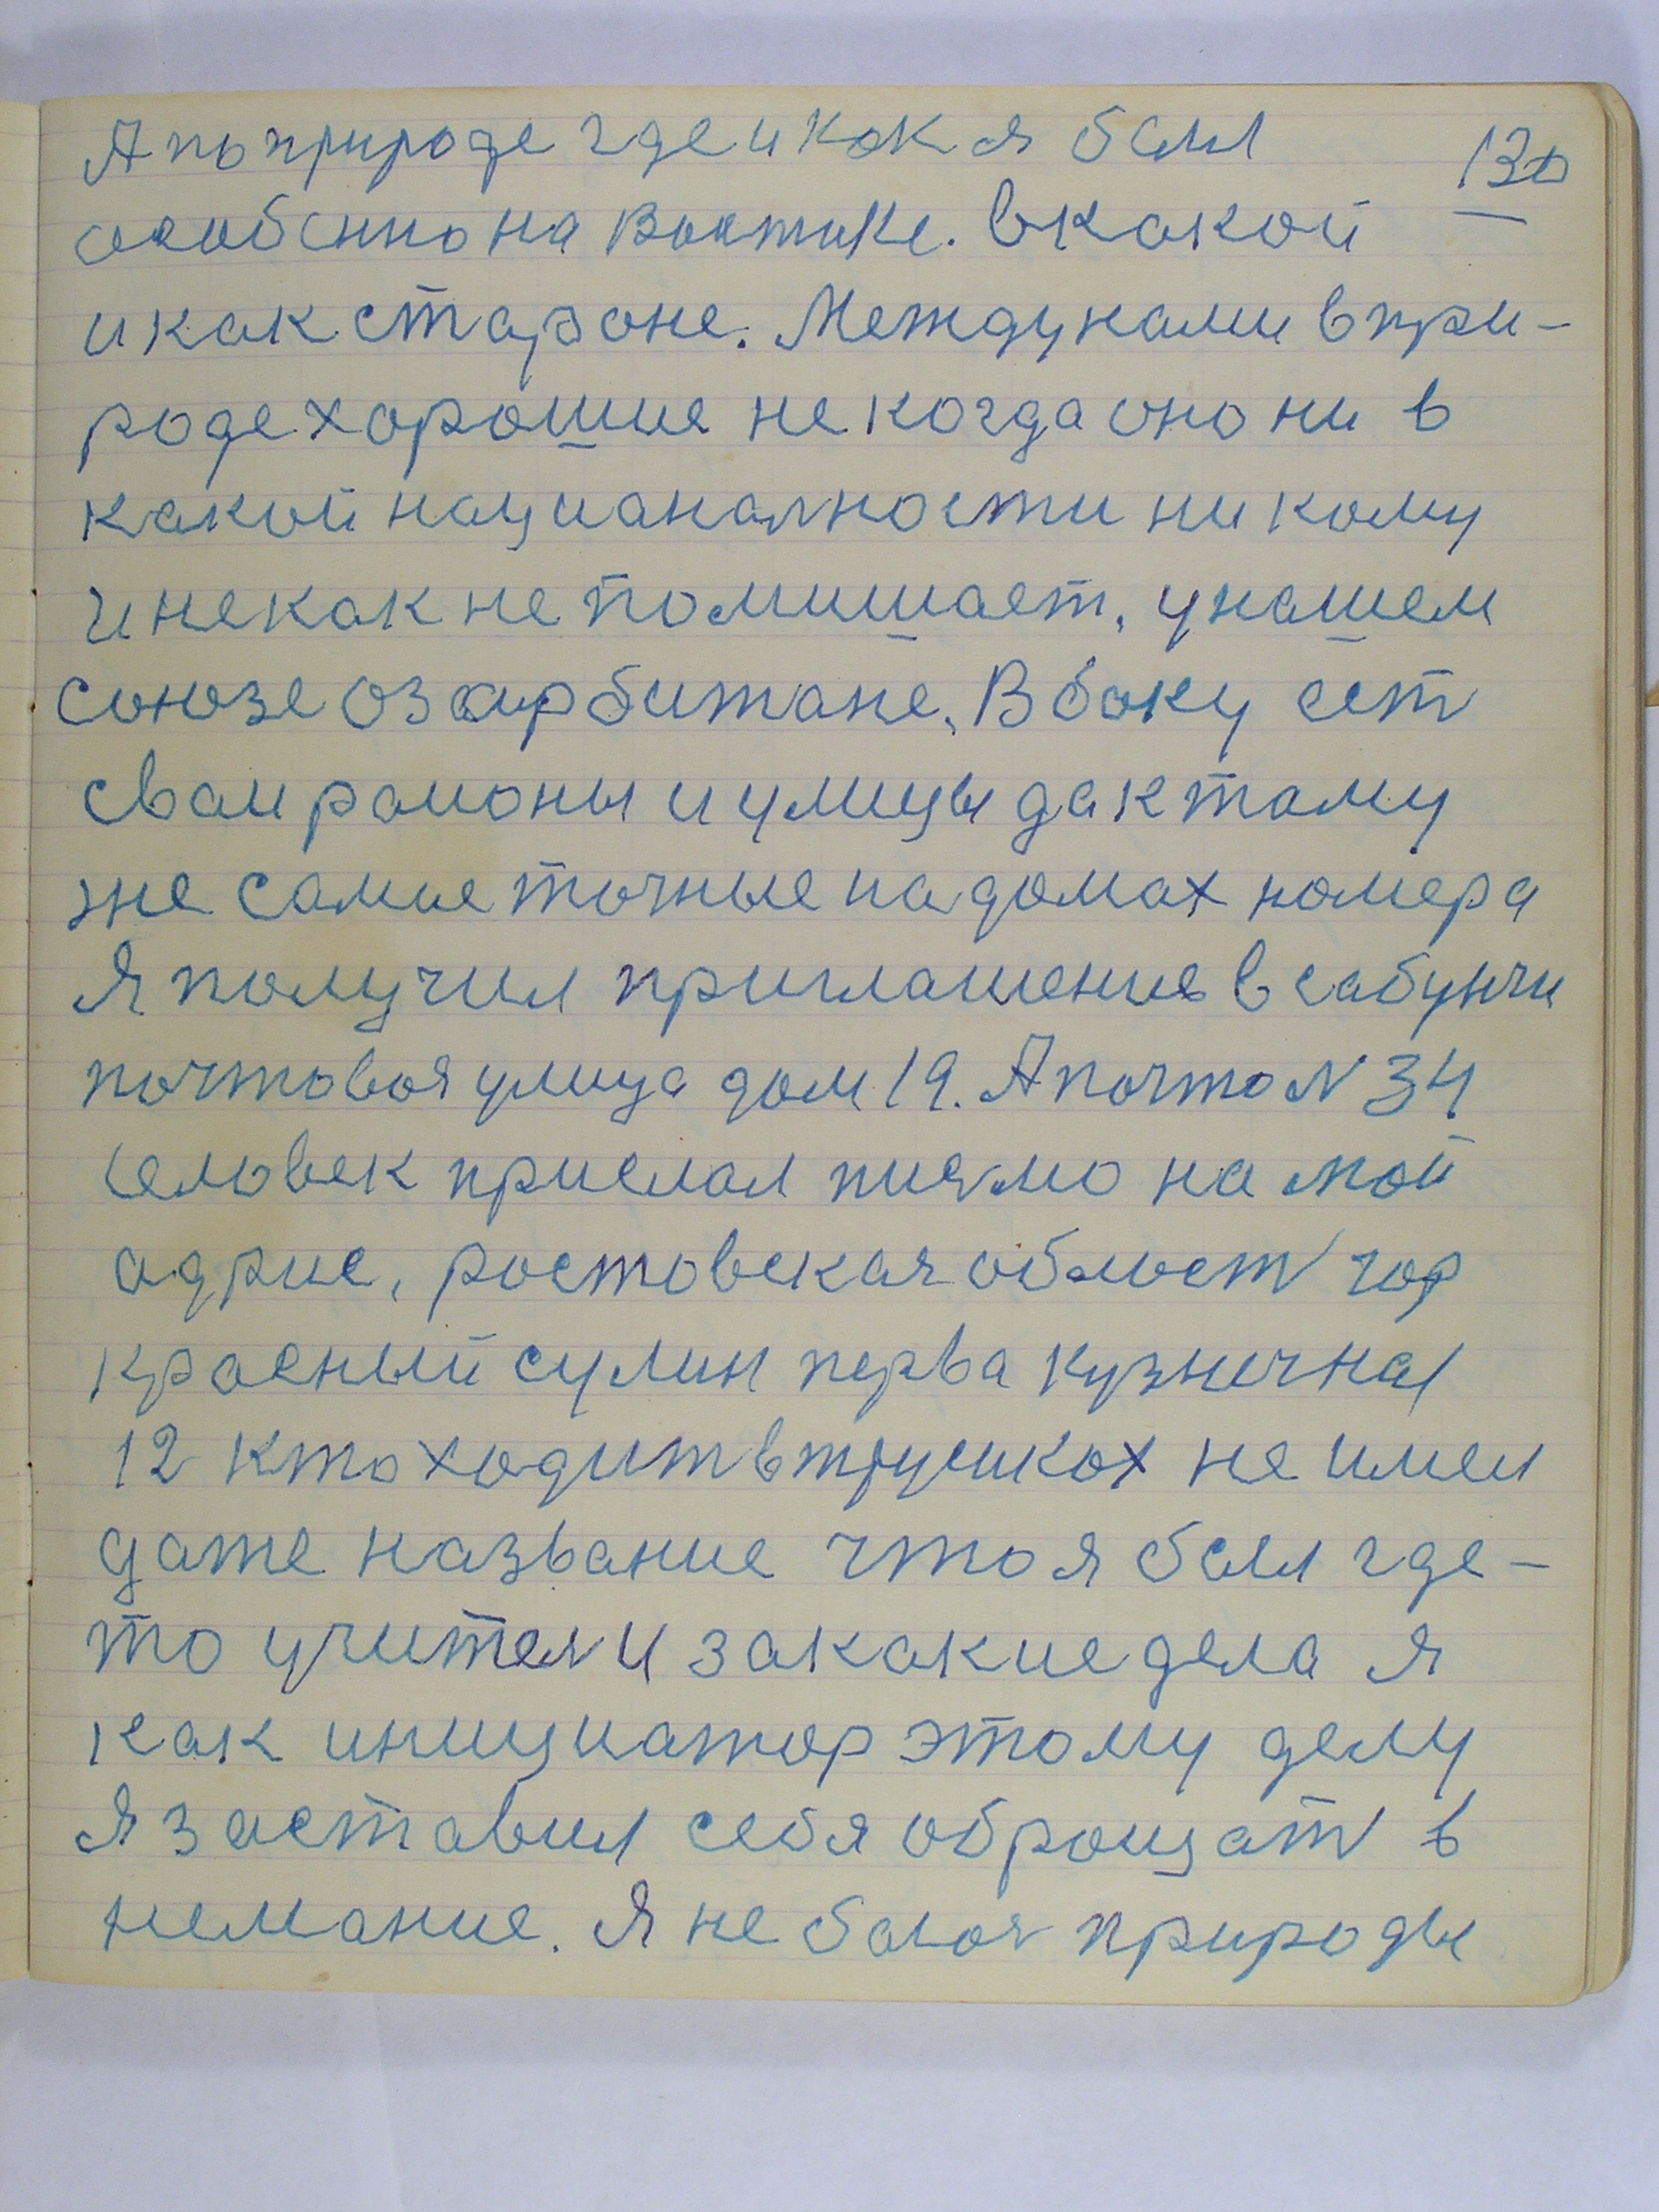 А по природе где и как я был
130
особенно на Востоке. в какой
и как староне. Между нами в при-
роде хорошие не когда оно ни в
какой нацианалности ни кому
и не как не помишает, у нашем
союзе озарбитане, В баку ест
сваи раионы и улицы да к таму
же самые точные на домах номера
Я получил приглашение в сабунчи
почтовоя улица дом 19. А почто N 34
Человек прислал писмо на мой
адрис, ростовская област гор
красный сулин перва кузнечная
12 кто ходит в трусиках не имел
даже название что я был где-
то учител и за какие дела я
как инициатор этому делу
Я заставил себя оброщат в
нимание. Я не балоя природы